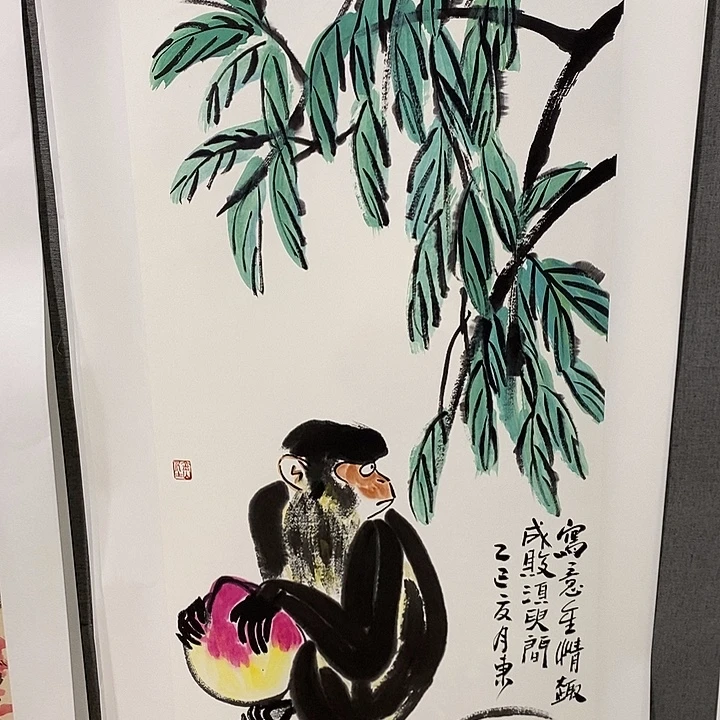 寫意重情趣
成敗須臾間
乙巳夏月東